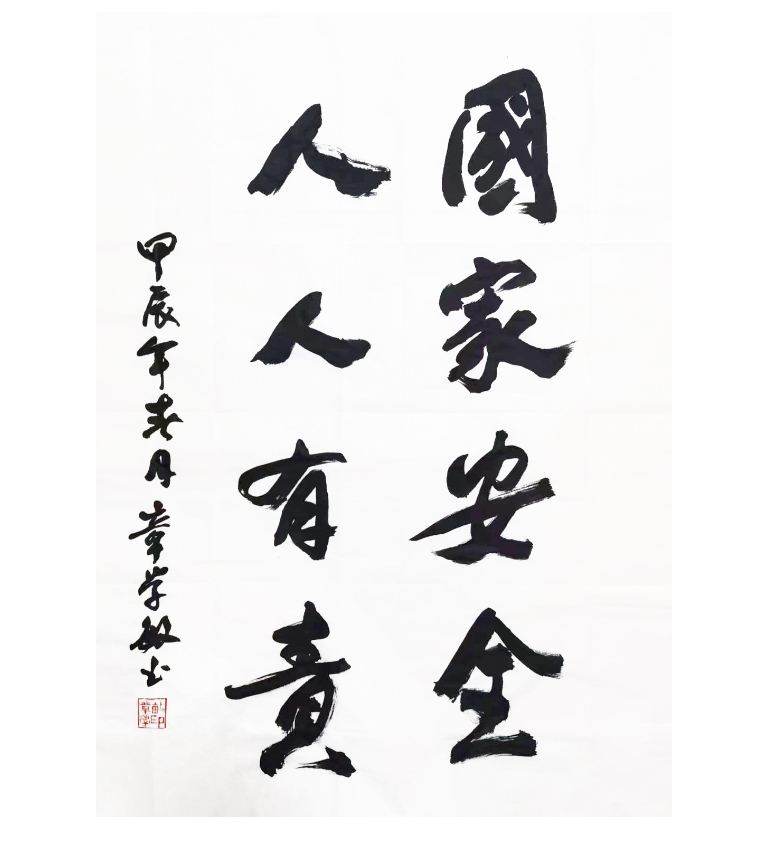 國家安全
人人有責
甲辰年春月章学敏书